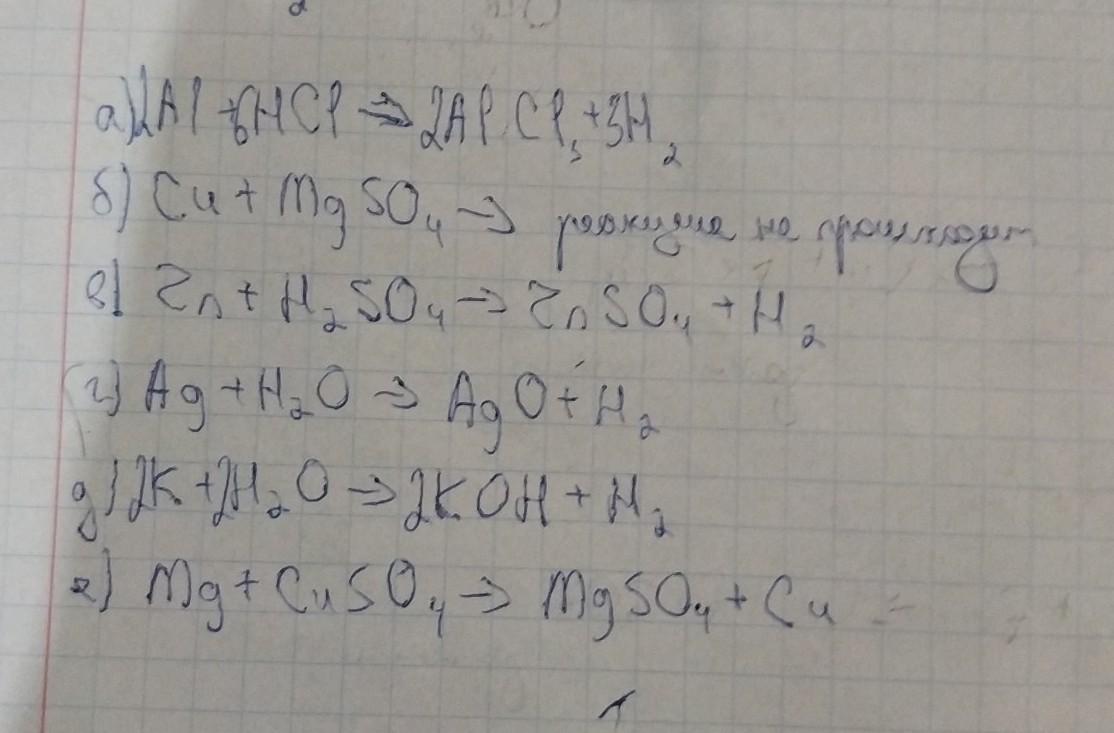 а) 2Al + 6HCl → 2AlCl₃ + 3H₂
б) Cu + MgSO₄ → реакция не происходит
в) Zn + H₂SO₄ → ZnSO₄ + H₂
г) Ag + H₂O → AgO + H₂
д) 2K + 2H₂O → 2KOH + H₂
е) Mg + CuSO₄ → MgSO₄ + Cu